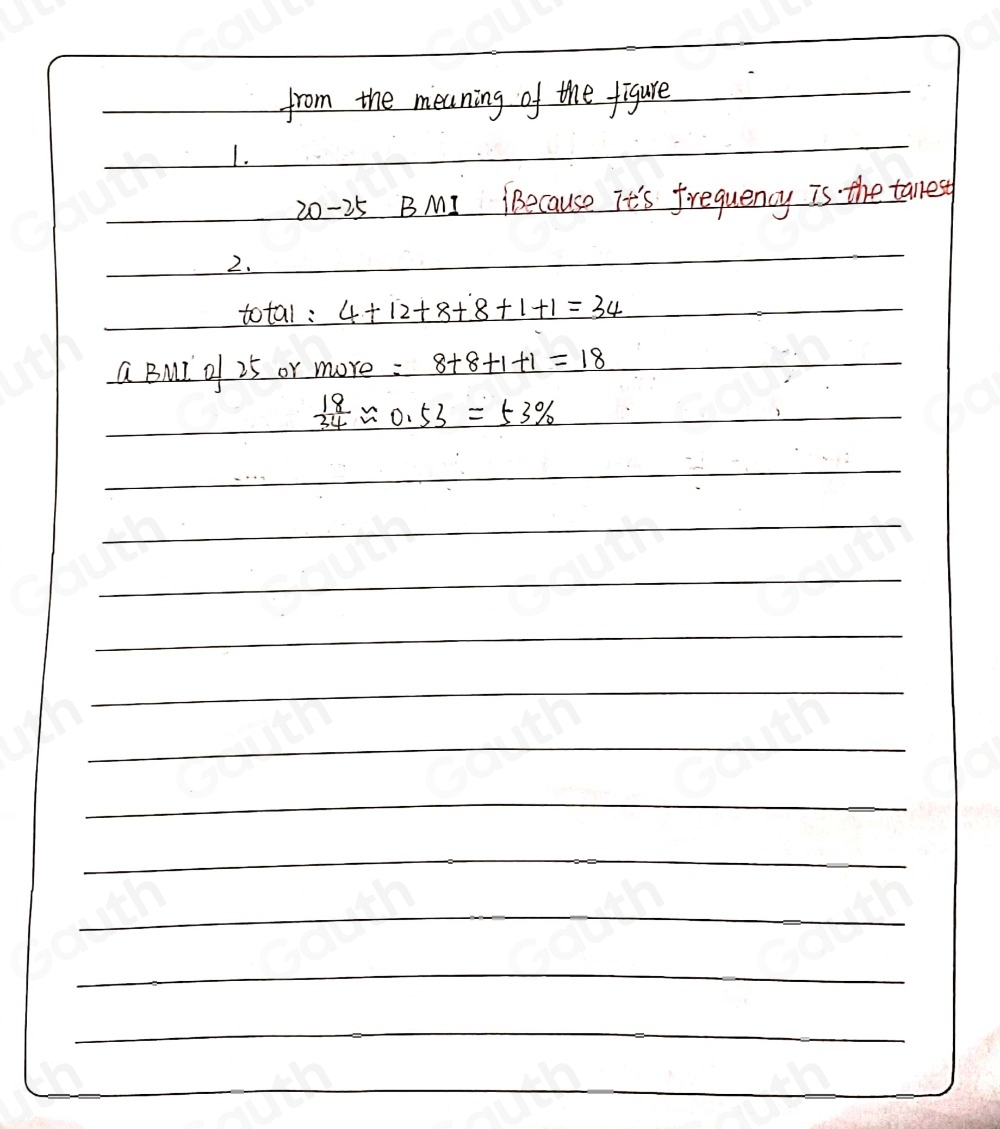 from the meaning of the figure
1.
20-25 BMI (Because it's frequency is the tallest
2.
total: 4+12+8+8+1+1=34
a BMI of 25 or more = 8+8+1+1=18
18/34 ≈ 0.53 = 53%